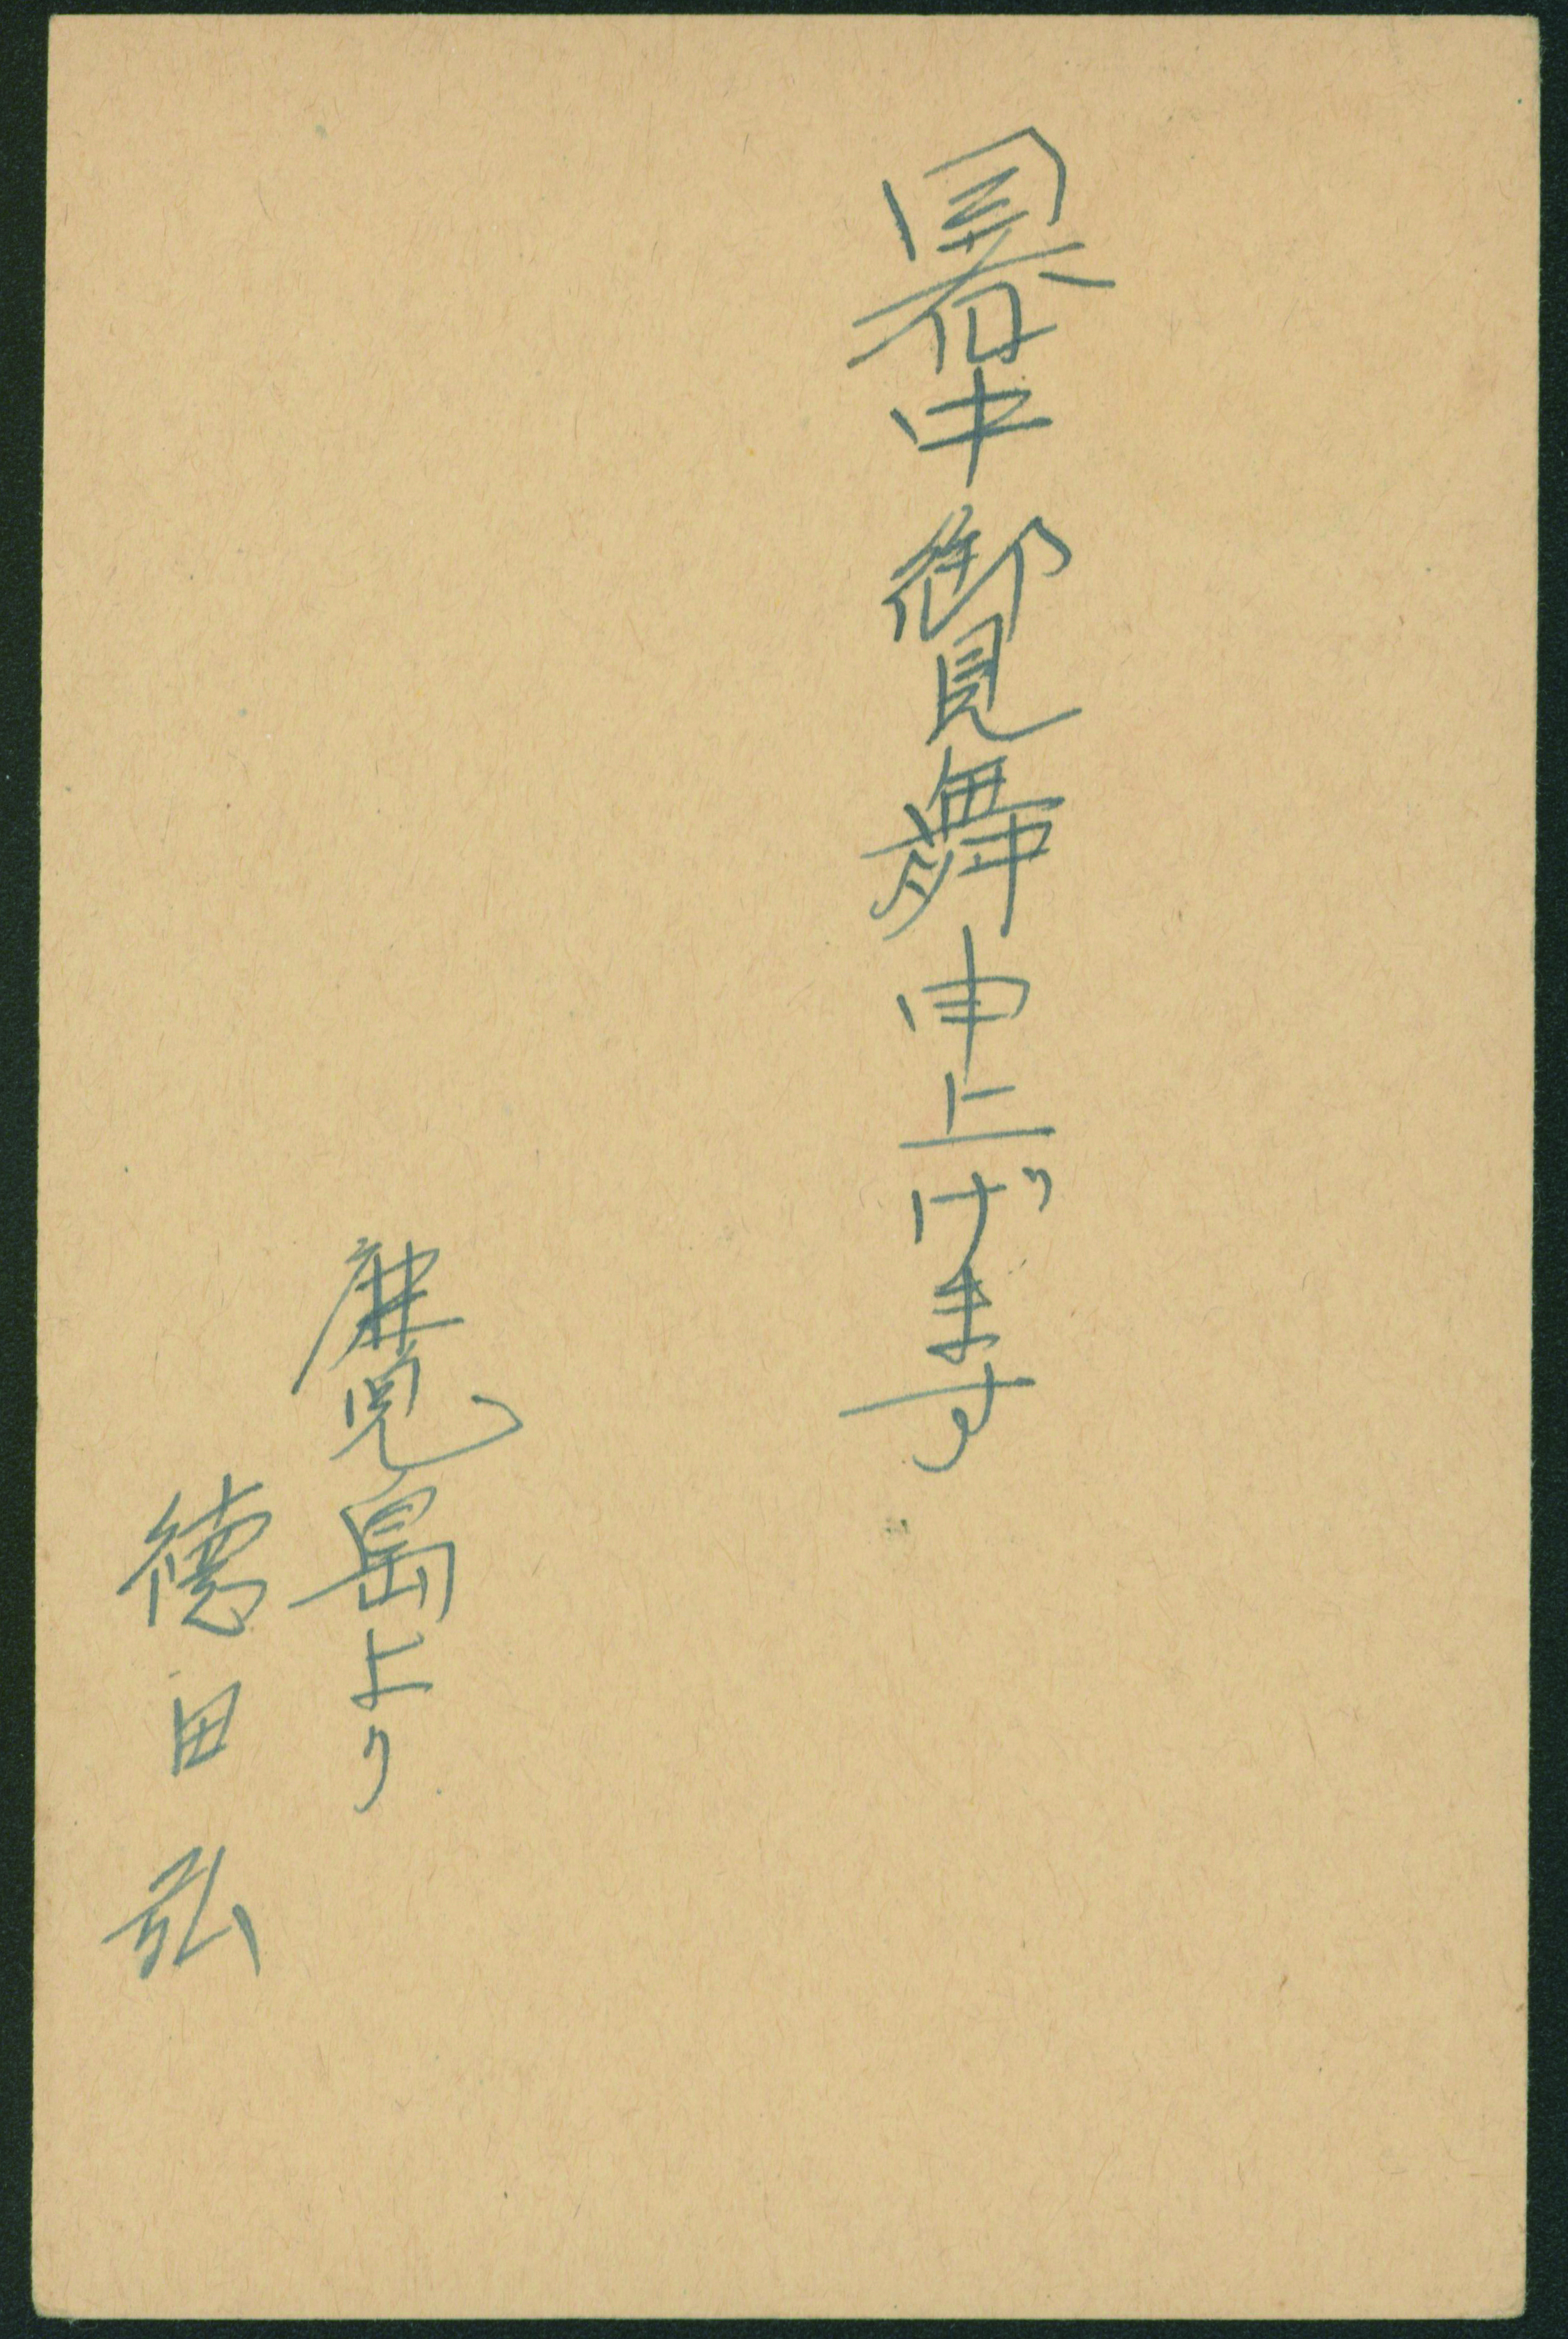 暑中御見舞申上げます
鹿児島より
徳田弘